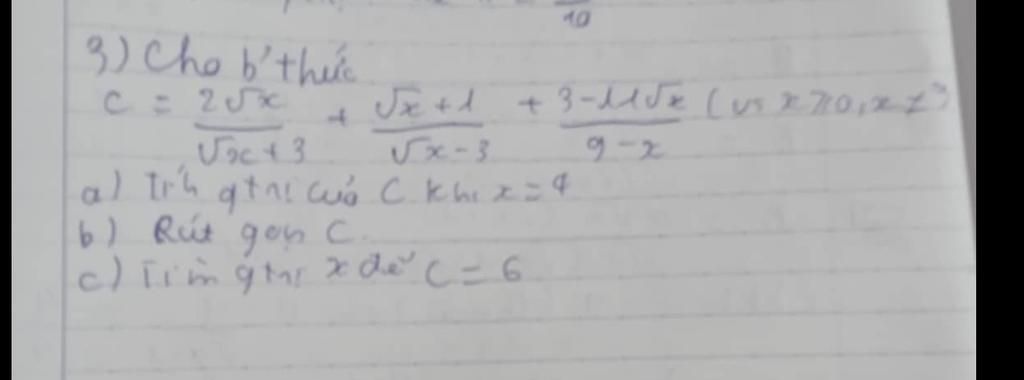 10
3) Cho b'thức
C = 2√x / √x + 3 + √x + 1 / √x - 3 + 3 - 11√x / 9 - x (vs x ≥ 0, x ≠
a) Tính gtrị của C khi x =
b) Rút gọn C.
c) Tìm gtrị x để C = 6